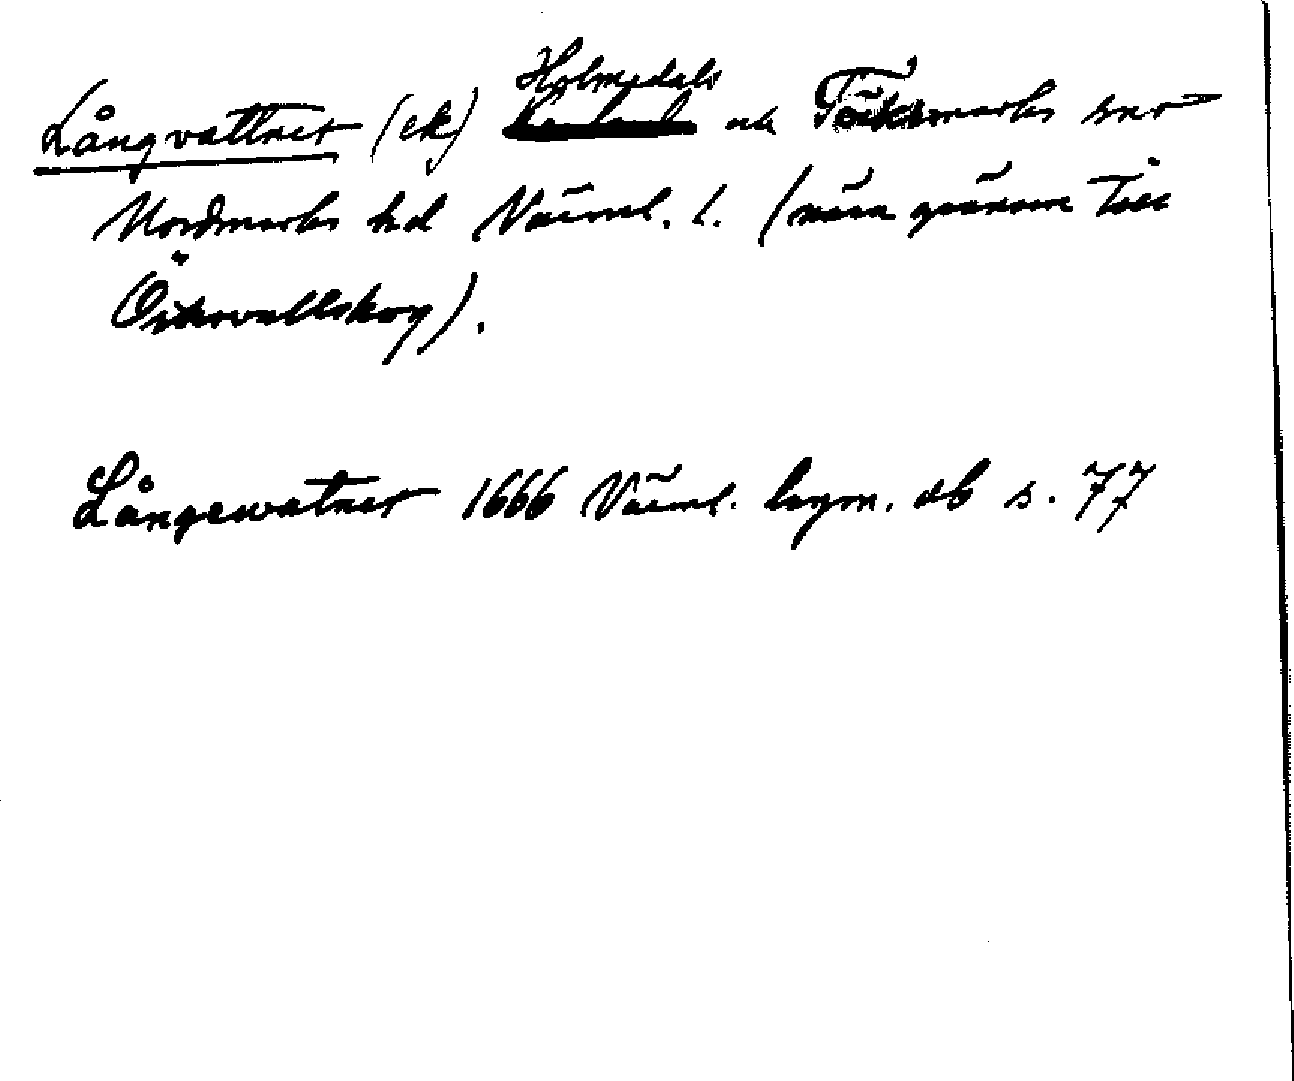 Långvattnet (ek) Holmedals och Töcksmarks snr
Nordmarks hd Värml. l. (nära gränsen till
Östervallskog).
Långewatnet 1666 Värml. legn. db s. 77